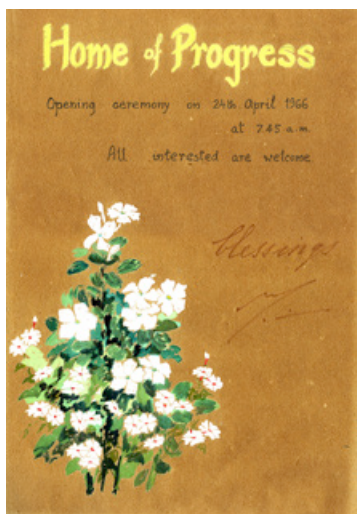 Home of Progress
Opening ceremony on 24th April 1966
at 7.45 a.m.
All interested are welcome.
blessings